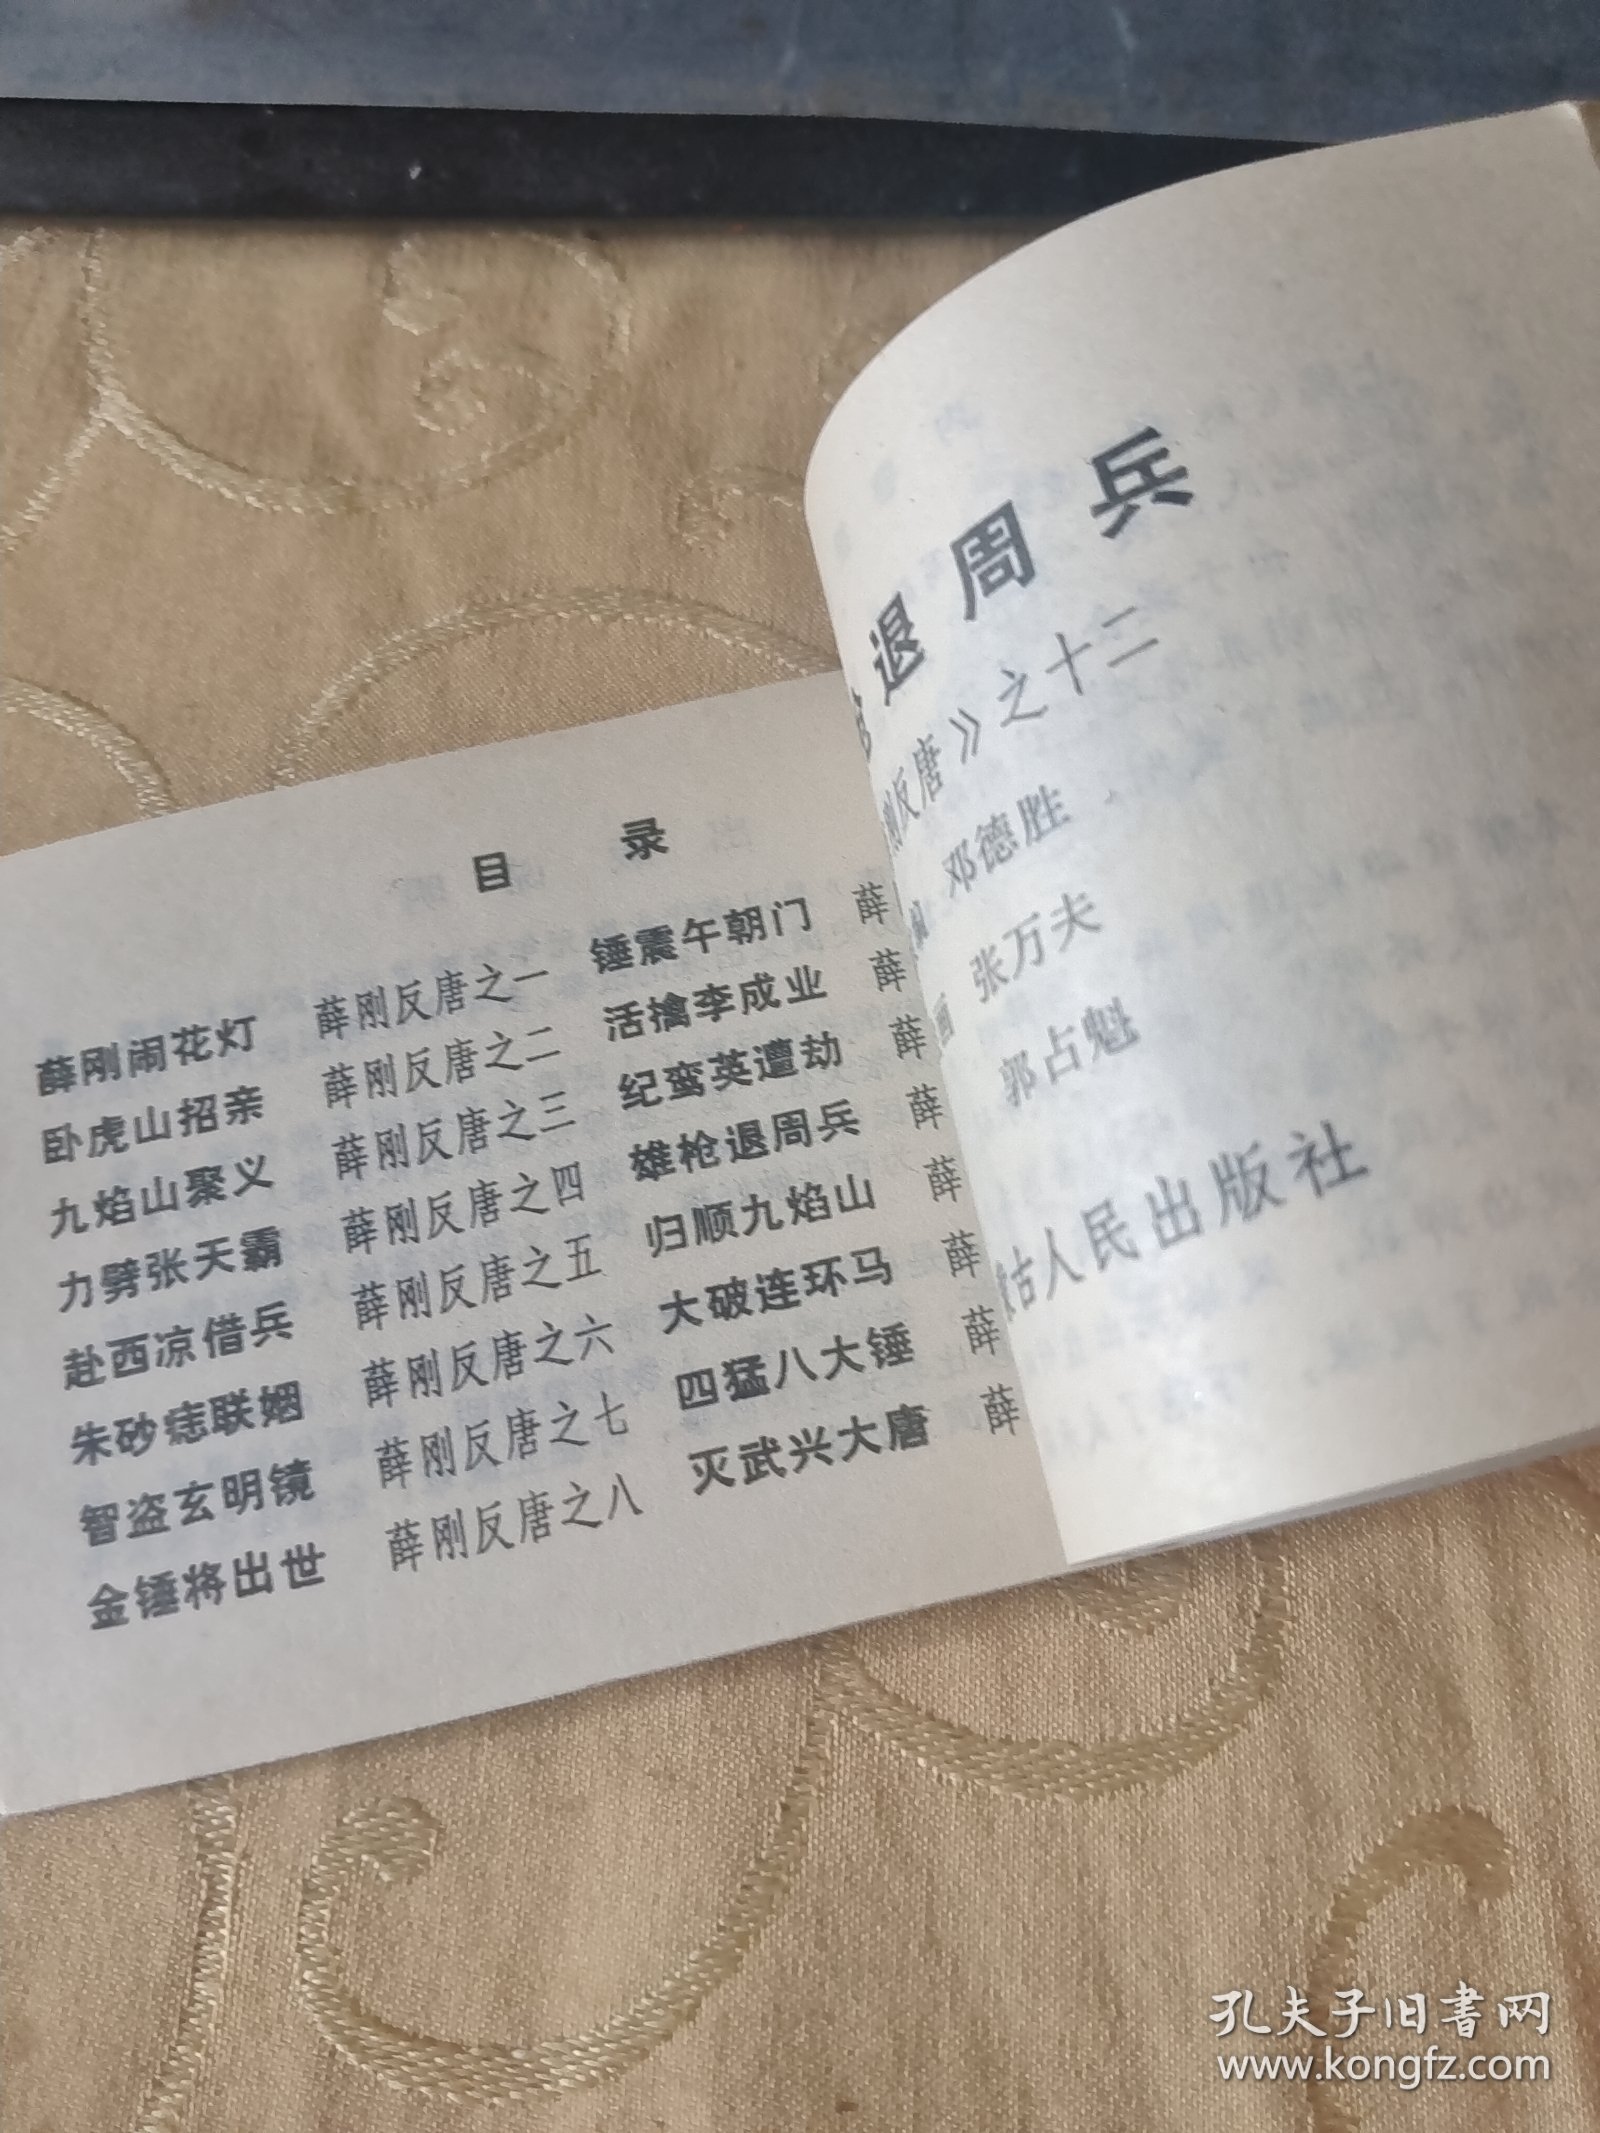 目 录
薛刚闹花灯 薛刚反唐之一 锤震午朝门 薛
卧虎山招亲 薛刚反唐之二 活擒李成业 薛
九焰山聚义 薛刚反唐之三 纪鸾英遭劫 薛
力劈张天霸 薛刚反唐之四 雄枪退周兵 薛
赴西凉借兵 薛刚反唐之五 归顺九焰山 薛
朱砂痣联姻 薛刚反唐之六 大破连环马 薛
智盗玄明镜 薛刚反唐之七 四猛八大锤 薛
金锤将出世 薛刚反唐之八 灭武兴大唐 薛
退周兵
反唐》之十二
邓德胜
画 张万夫
郭占魁
古人民出版社
孔夫子旧书网
www.kongfz.com